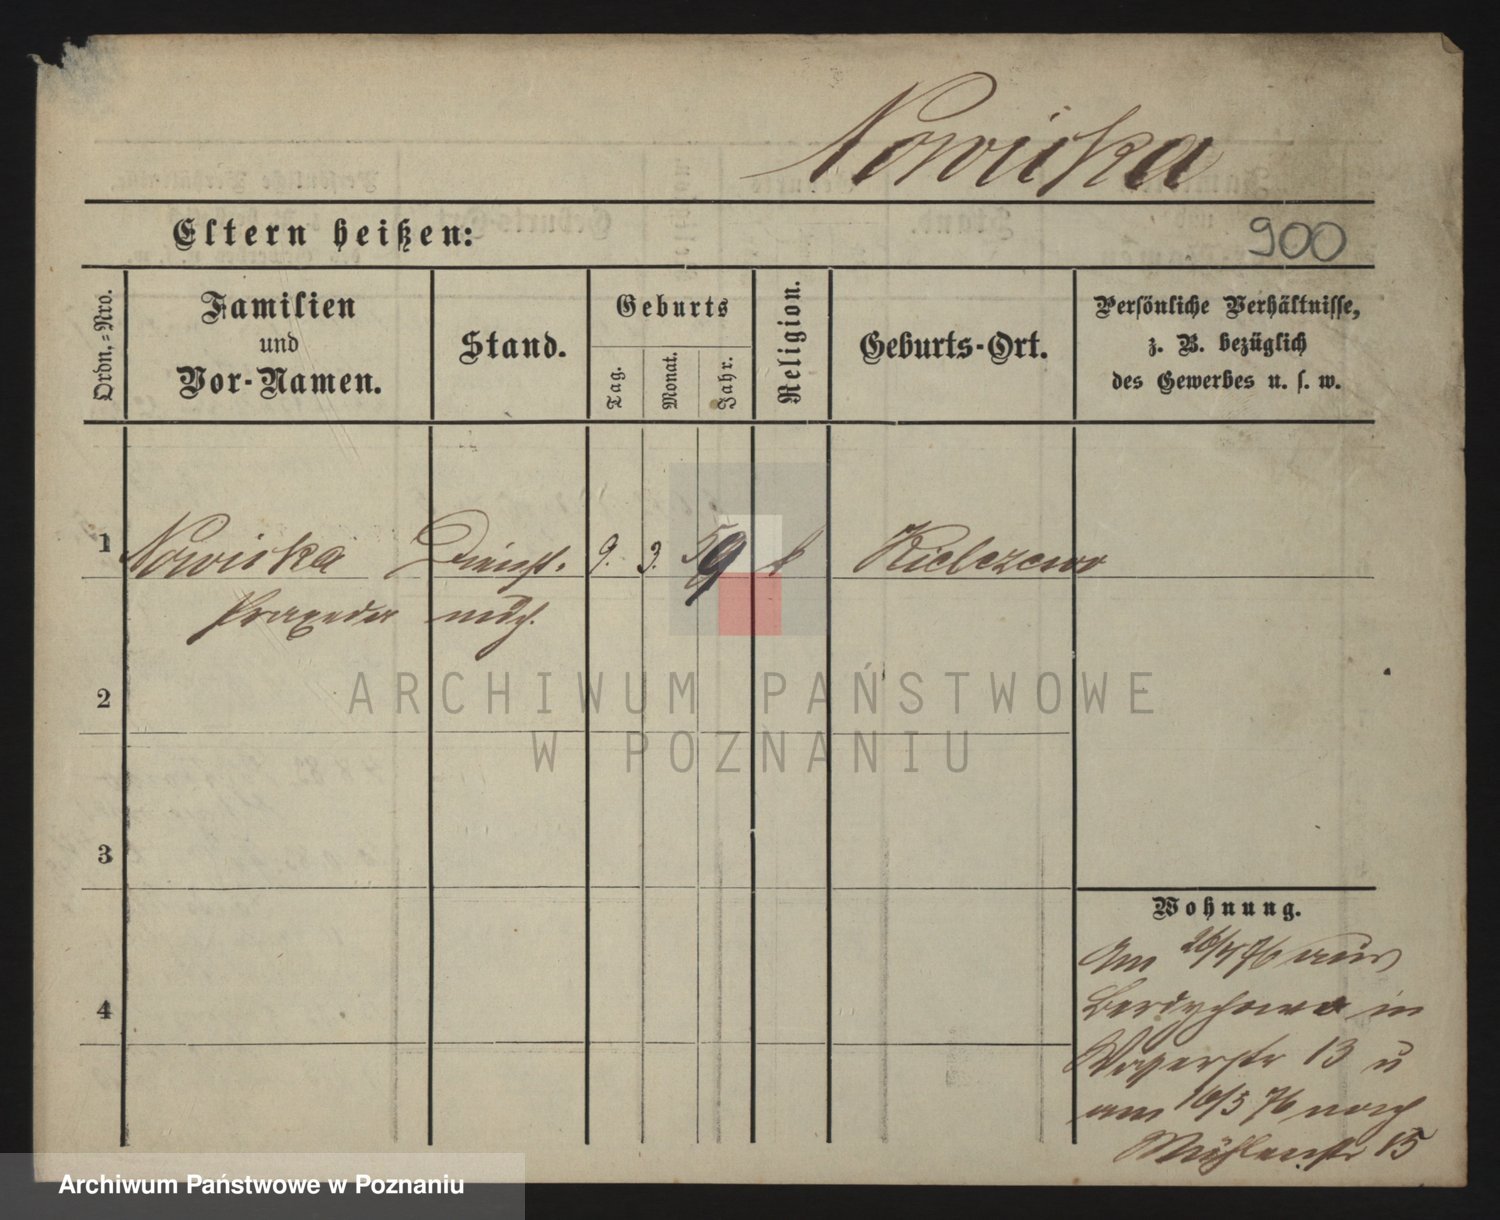 Nowicka
Eltern heißen:
900
Ordn.-Nro.
Familien
und
Vor-Namen.
Stand.
Geburts
Tag.
Monat.
Jahr.
Religion.
Geburts-Ort.
Persönliche Verhältnisse,
z. B. bezüglich
des Gewerbes u. s. w.
1 Nowicka Dienst. 9. 3. 59 k Kielczewo
Praxeda mdch.
2
3
4
Wohnung.
Am 26/4 76 aus
Berdychowo in
13 u
am 16/5 76 nach
Mühlenstr 15
ARCHIWUM PAŃSTWOWE
W POZNANIU
Archiwum Państwowe w Poznaniu